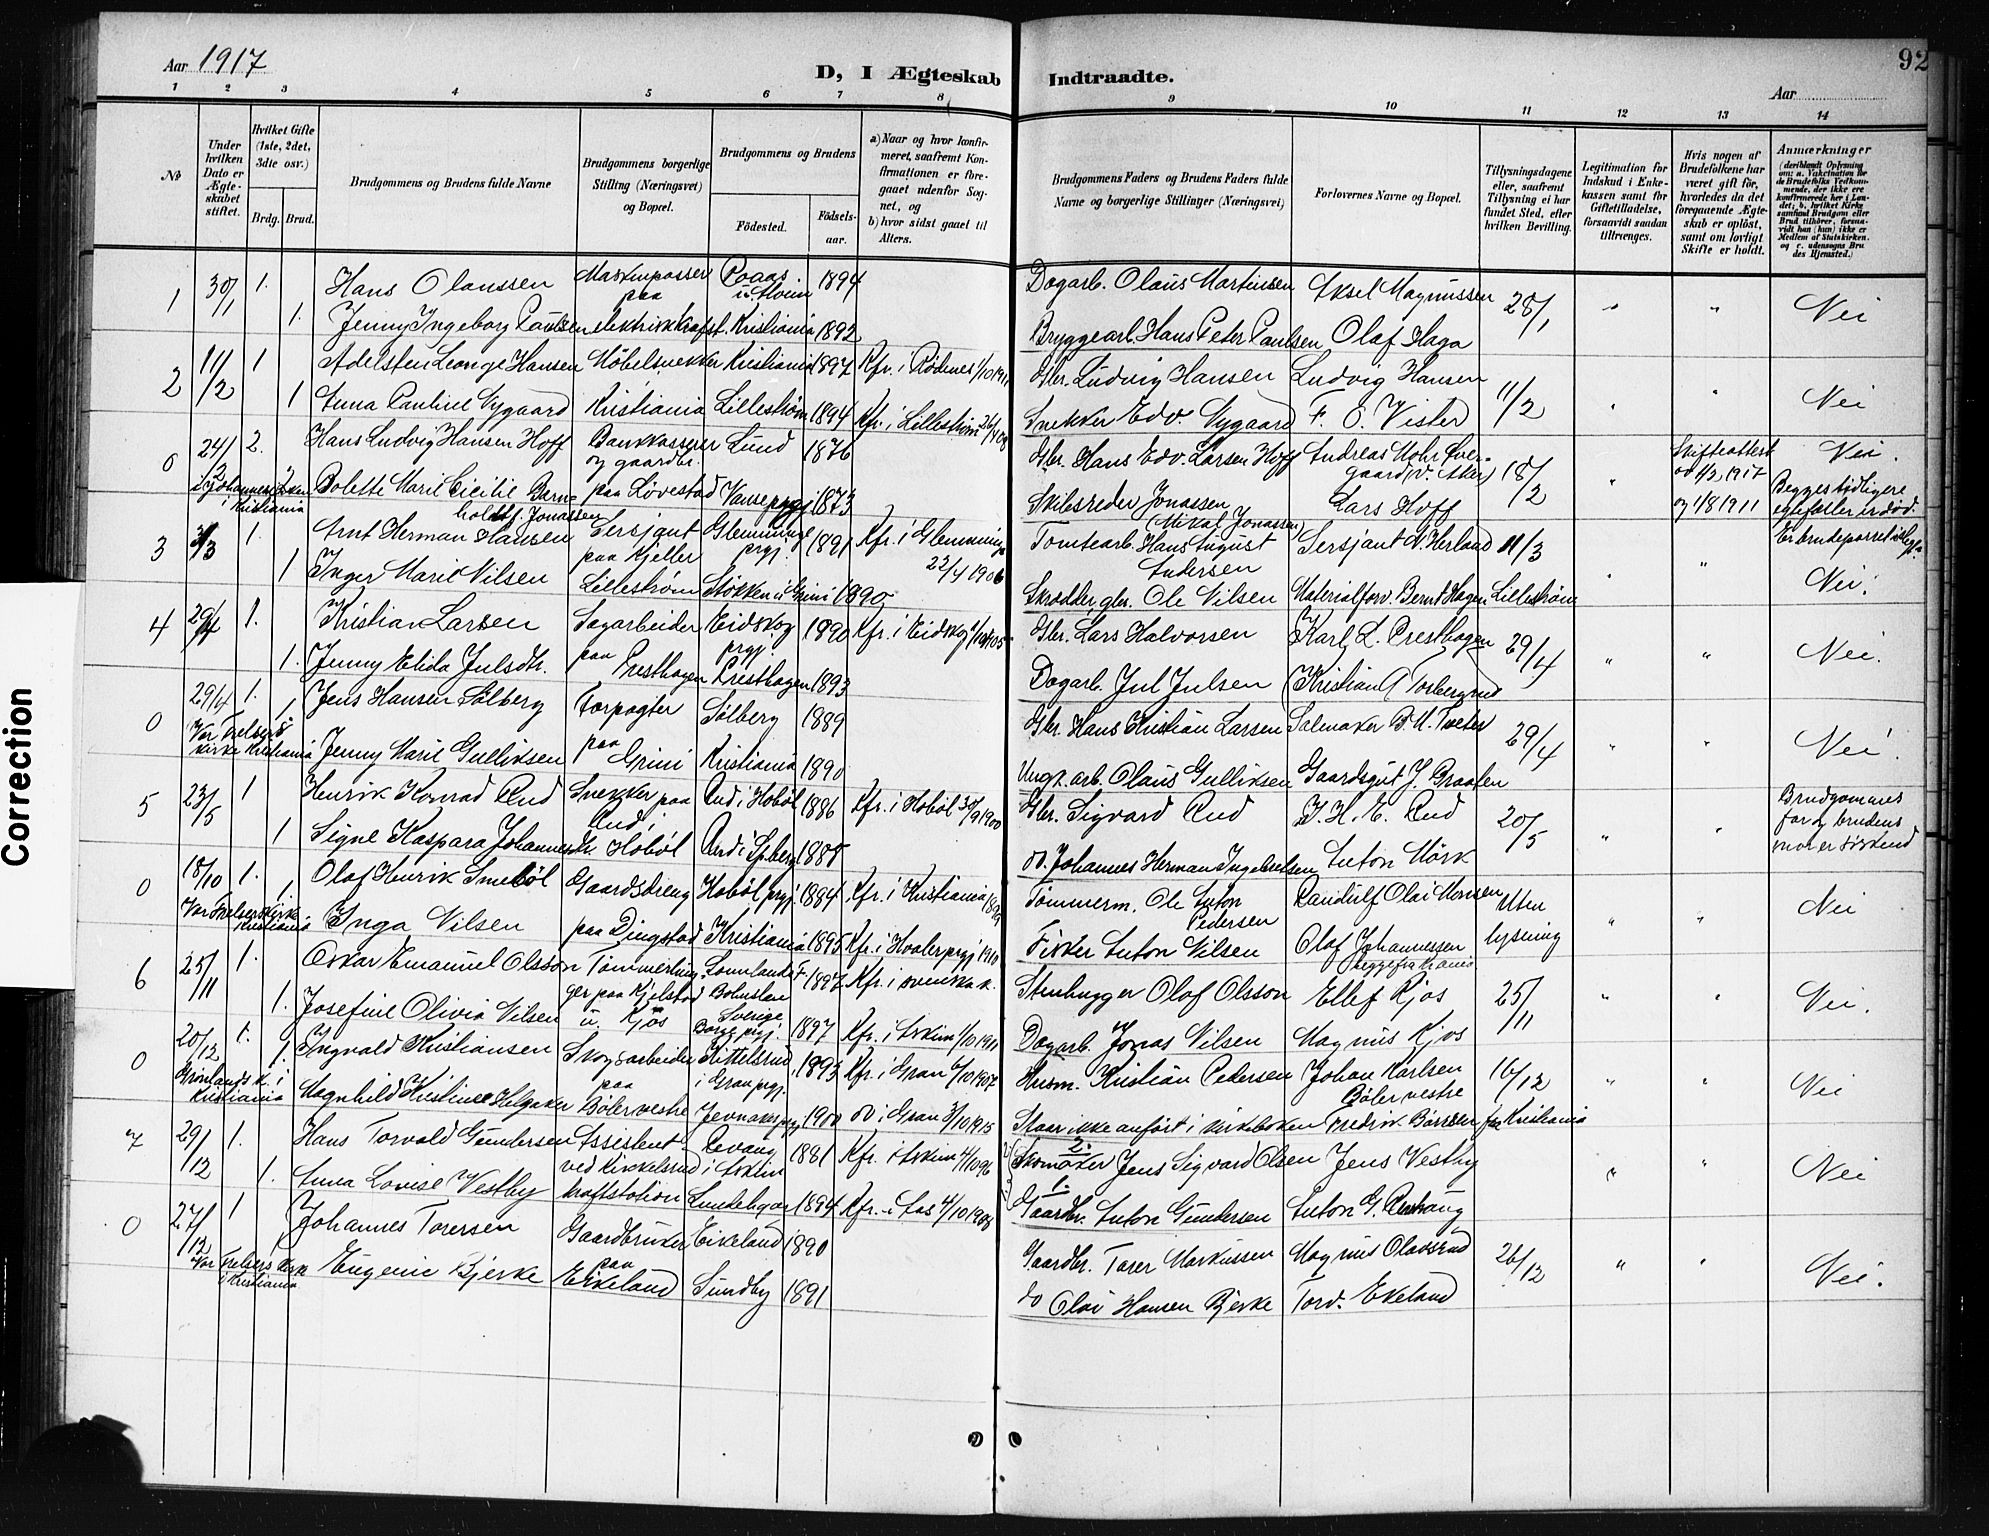 Aar 1917
D, I Ægteskab Indtraadte.
Aar
92
1 2 3 4 5 6 7 8 9 10 11 12 13 14
No
Under hvilken Dato er Ægteskabet stiftet.
Hvilket Gifte (1ste, 2det, 3die osv.)
Brdg. Brud.
Brudgommens og Brudens fulde Navne
Brudgommens borgerlige Stilling (Næringsvei) og Bopæl.
Brudgommens og Brudens
Fødested.
Fødselsaar.
a) Naar og hvor konfirmeret, saafremt Konfirmationen er foregaaet udenfor Sognet, og
b) hvor sidst gaaet til Alters.
Brudgommens Faders og Brudens Faders fulde Navne og borgerlige Stillinger (Næringsvei)
Forlovernes Navne og Bopæl.
Tillysningsdagene eller, saafremt Tillysning ei har fundet Sted, efter hvilken Bevilling.
Legitimation for Indskud i Enkekassen samt for Giftetilladelse, forsaavidt saadan tiltrænges.
Hvis nogen af Brudefolkene har været gift før, hvorledes da det foregaaende Ægteskab er opløst, samt om lovligt Skifte er holdt.
Anmærkninger
(deriblandt Oplysning om: a. Vaksination for de Brudefolks Vedkommende, der ikke ere konfirmerede her i Landet; b. hvilket Kirkesamfund Brudgom eller Brud tilhører, forsaavidt han (hun) ikke er Medlem af Statskirken, og c. udensogns Brudes Hjemsted.)
1 30/1 1. Hans Olaussen Maskinpasser 1894 Dagarb. Olaus Martinsen Aksel Magnussen 28/1 " " Nei
1. Jenny Ingeborg Paulsen paa elektrisk kraftst. Kristiania 1892 Bryggearb. Hans Peter Paulsen Olaf Haga
2 11/2 1 Adelsten Leonge Hansen Møbelsnekker Kristiania 1897 Kfr. i Rødenes 1/10 1911 Gbr. Ludvig Hansen Ludvig Hansen 11/2 " " Nei
1 Anna Pauline Nygaard Kristiania Lillestrøm 1894 Kfr. i Lillestrøm Snekker Edv. Nygaard F. O. Vister
0 24/2 2. Hans Ludvig Hansen Hoff Bankkasserer og gaardbr. Lund 1876 Gbr. Hans Edv. Larsen Hoff Andreas Mohr Øvergaard (V. Aker) 18/2 " Skifteattest Nei.
Johanneskirken i Kristiania 2. Bolette Marie Cicilie Barneholdt f. Jonassen paa Løvestad Vanse prgj 1873 Skibsreder Jonassen (Mikal Jonassen) Lars Hoff og 1/8 1911 Begges tidligere egtefæller er død.
3 1. Arnt Herman Hansen Sersjant paa Kjeller Glemminge prgj. 1891 Kfr. i Glemminge 22/4 1906 Tomtearb. Hans August Andersen Sersjant N. Herland 11/3 " " Er brudeparret i slegt?
1 Inger Marie Nilsen Lillestrøm Støkken u. Grini 1890 Skrædder, gbr. Ole Nilsen Materialforv. Bernt Hagen Lillestrøm Nei.
4 29/4 1. Kristian Larsen Sagarbeider Eidskog prgj. 1890 Kfr. i Eidskog 1905 Gbr. Lars Halvorsen Karl L. Presthagen 29/4 " " Nei.
1. Jenny Elida Julsdtr. paa Presthagen Presthagen 1893 Dagarb. Jul Julsen (Kristian Torbergrud
0 29/4 1. Jens Hansen Sølberg Forpagter Sølberg 1889 Gbr. Hans Kristian Larsen Salmaker B. M. Tveter 29/4 " " Nei.
Vor Frelsers kirke Kristiania 1 Jenny Marie Gulliksen paa Grini Kristiania 1890 Ungk. arb. Olaus Gulliksen Gaardsgut J. Graaten
5 23/5 1 Henrik Konrad Rud Snekker paa Rud i Hobøl Rud i Hobøl 1886 Kfr. i Hobøl 30/9 1900 Gbr. Sigvard Rud H. E. Rud 20/5 " " Brudgommens far og brudens mor er søskend
1 Signe Kaspara Johannesdtr. Rud i Sp.berg 1888 do. Johannes Herman Ingebretsen Anton Mörk
0 18/10 1. Olaf Henrik Smebøl Gaardsdreng Hobøl prgj. 1884 Kfr. i Kristiania 1899 Tømmerm. Ole Anton Pedersen Randulf Olai Monsen Uten lysning " " Nei
Vor Frelsers kirke Kristiania 1. Inga Nilsen paa Dingstad Kristiania 1895 Kfr. i Hvaler prgj 1910 Fisker Anton Nilsen Olaf Johannessen begge fra Krania
6 25/11 1. Oskar Emanuel Olsson Tømmerhugger paa Kjelstad u. Kjos Bohuslen Sverige 1897 Kfr. i svenska k. Stenhugger Olof Olsson Ellef Kjos 25/11 " " Nei.
1. Josefine Olivia Nilsen Borge prgj. 1897 Kfr. i Askim 1/10 1911 Dagarb. Jonas Nilsen Magnus Kjos
0 20/12 1. Ingvald Kristiansen Skogsarbeider Kittelsrud i Gran prgj. 1893 Kfr. i Gran 6/10 1907 Husm. Kristian Pedersen Johan Karlsen Bøler vestre 16/12 " " Nei
Grønlands k. i Kristiania 1. Magnhild Kristine Helgaker paa Bøler vestre Jevnaker prgj 1900 do i Gran 3/10 1915 Staar ikke anført i kirkeboken Fredrik Børresen fra Kristiania
7 29/12 1. Hans Torvald Gundersen Assistent ved Kykkelsrud kraftstation Revaug i Askim 1881 Kfr. i Askim 4/10 96 2. Skomaker Jens Sigvard Olsen Jens Vestby " " Nei
1. Anna Lovise Vestby 1894 Kfr. i Aas 4/10 1908 1. Gaardbr. Anton Gundersen Anton G. Revhaug
0 27/12 1 Johannes Torersen Gaardbruker Eikeland 1890 Gaardbr. Torer Markussen Magnus Olavsrud 26/12 " " Nei.
Vor Frelsers kirke i Kristiania 1 Eugenie Bjerke paa Eikeland Sundby 1891 do Olai Hansen Bjerke Torv. Ekeland
Correction